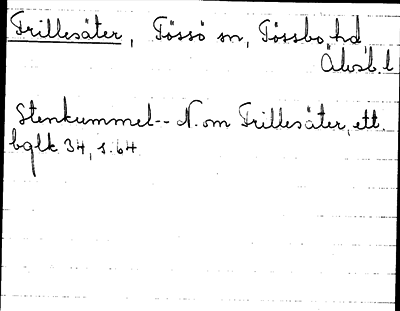 Trillesäter, Tössö sn, Tössbo hd
Älvsb. l
Stenkummel -- N. om Trillesäter, ett
bglk 34, s. 64